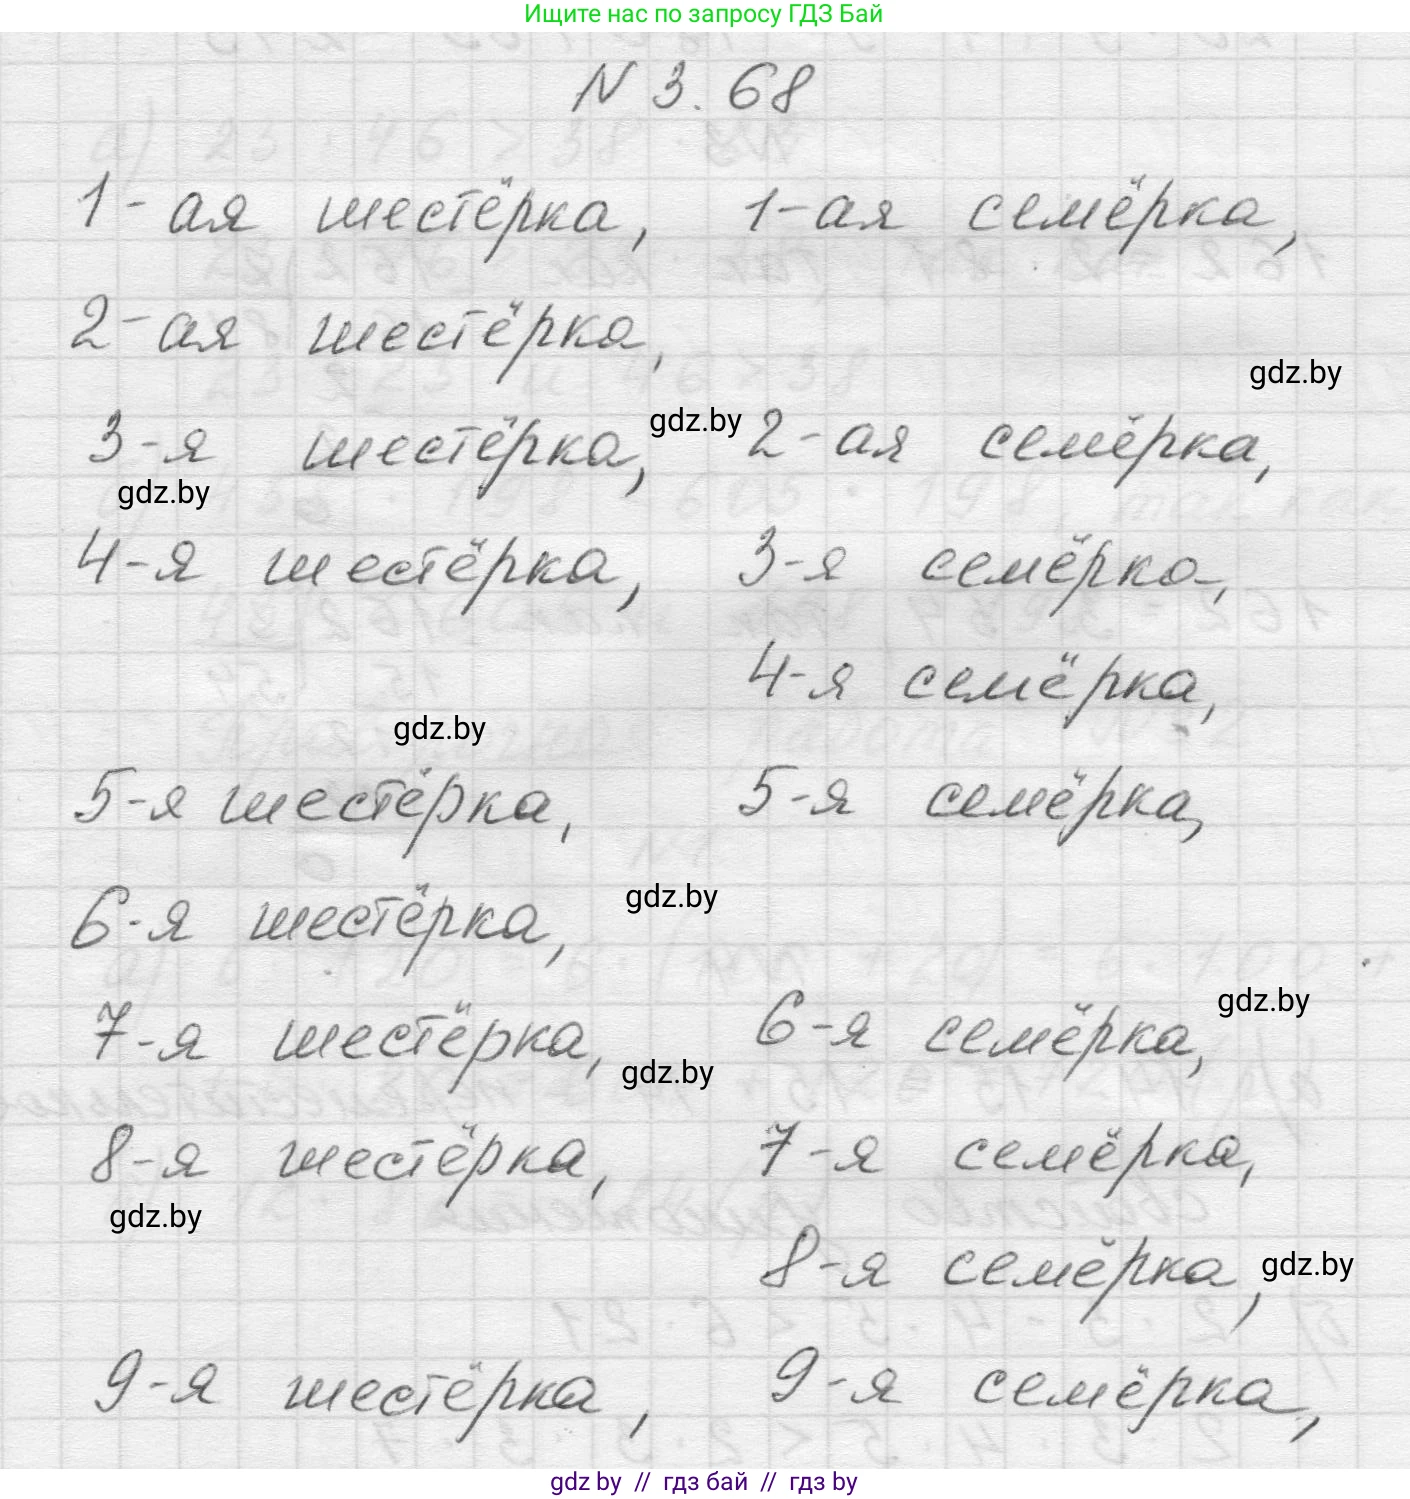 Ищите нас по запросу ГДЗ Бай
N 3.68
1-ая шестёрка, 1-ая семёрка,
2-ая шестёрка,
gdz.by
3-я шестёрка, gdz.by 2-ая семёрка,
gdz.by
4-я шестёрка, 3-я семёрка,
4-я семёрка,
gdz.by
5-я шестёрка, 5-я семёрка,
gdz.by
6-я шестёрка,
gdz.by
7-я шестёрка, 6-я семёрка,
gdz.by
8-я шестёрка, 7-я семёрка,
gdz.by
8-я семёрка, gdz.by
9-я шестёрка, 9-я семёрка,
gdz.by // гдз бай // гдз by